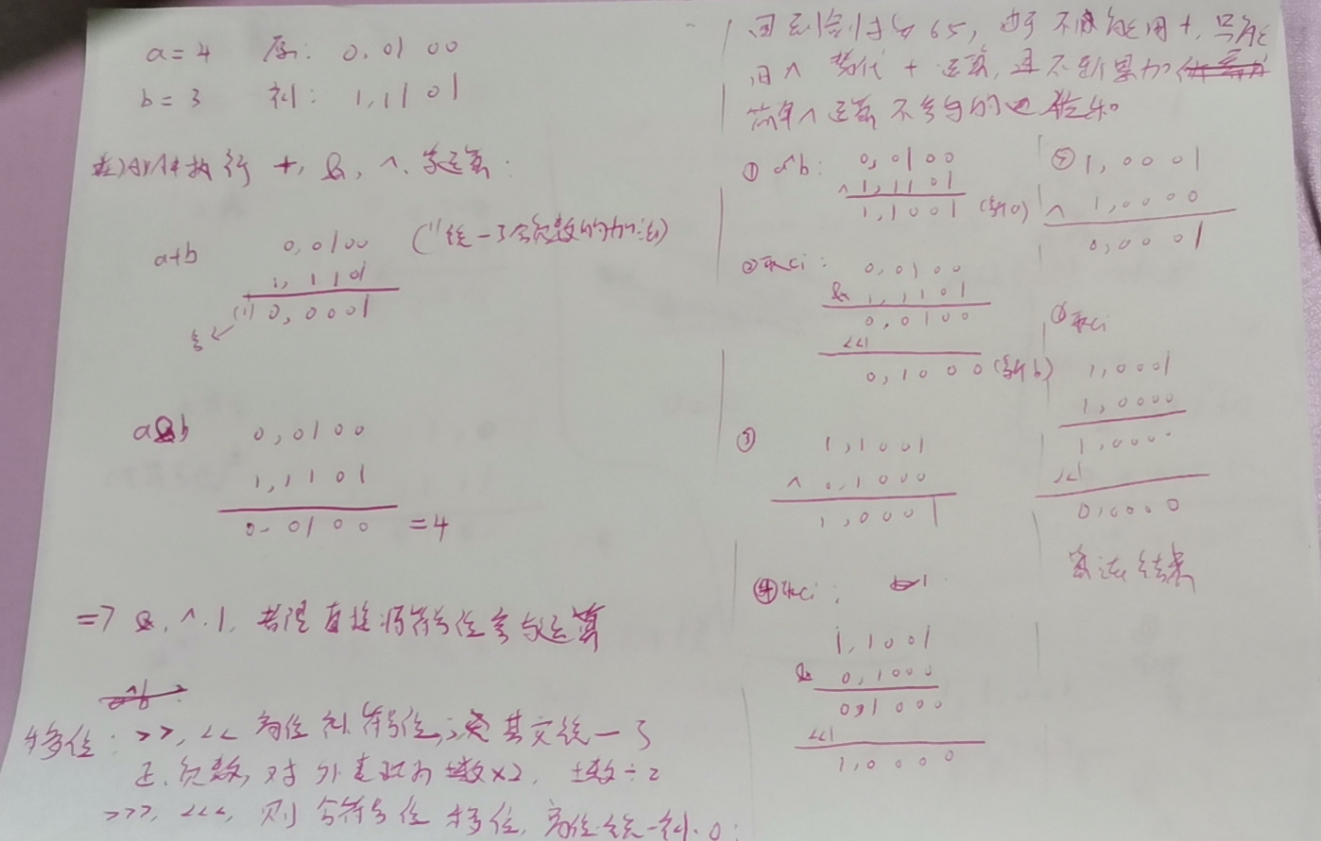 a=4 原: 0,0100
b=3 补: 1,1101
执行 +, &, ^, 等运算:
a+b 0,0100 (统一了含负数的加法)
1,1101
(1) 0,0001
a&b 0,0100
1,1101
0,0100 =4
=> &, ^, |, 都是直接将符号位参与运算
移位: >>, << 高位补符号位, 其实统一了
正、负数, 对外表现为 ±数×2, ±数÷2
>>>, <<<, 则含符号位移位, 高位统一补0;
回到剑指 65, 由于不能用+, 只能
用 ^ 替代 + 运算, 且不断累加
简单^运算不参与的进位和。
① a^b: 0,0100
^ 1,1101
1,1001 (新a)
② 取ci: 0,0100
& 1,1101
0,0100
<<1
0,1000 (新b)
③ 1,1001
^ 0,1000
1,0001
④ 取ci:
1,1001
& 0,1000
0,1000
<<1
1,0000
⑤ 1,0001
^ 1,0000
0,0001
⑥ 取ci
1,0001
1,0000
1,0000
<<1
0,0000
结果